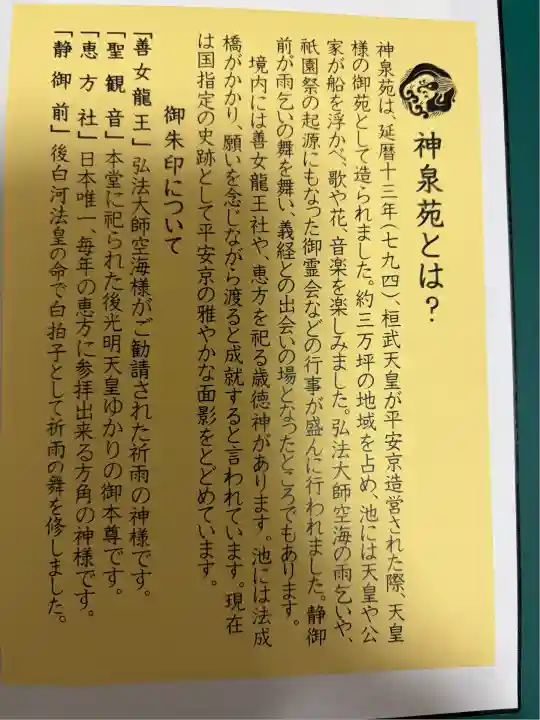 神泉苑とは？
神泉苑は、延暦十三年(七九四)、桓武天皇が平安京造営された際、天皇
様の御苑として造られました。約三万坪の地域を占め、池には天皇や公
家が船を浮かべ、歌や花、音楽を楽しみました。弘法大師空海の雨乞いや、
祇園祭の起源にもなった御霊会などの行事が盛んに行われました。静御
前が雨乞いの舞を舞い、義経との出会いの場となったところでもあります。
境内には善女龍王社や、恵方を祀る歳徳神があります。池には法成
橋がかかり、願いを念じながら渡ると成就すると言われています。現在
は国指定の史跡として平安京の雅やかな面影をとどめています。
御朱印について
「善女龍王」弘法大師空海様がご勧請された祈雨の神様です。
「聖観音」本堂に祀られた後光明天皇ゆかりの御本尊です。
「恵方社」日本唯一、毎年の恵方に参拝出来る方角の神様です。
「静御前」後白河法皇の命で白拍子として祈雨の舞を修しました。